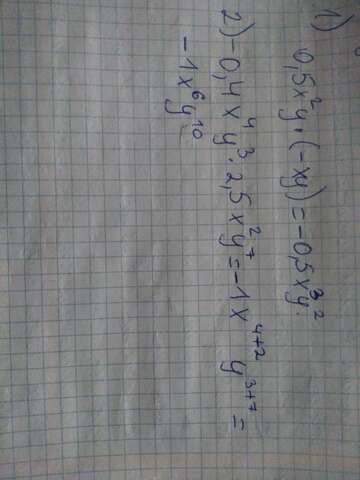 1)
0,5x²y·(-xy)=-0,5x³y².
2)-0,4x⁴y³·2,5x²y⁷=-1x⁴⁺²y³⁺⁷=
-1x⁶y¹⁰